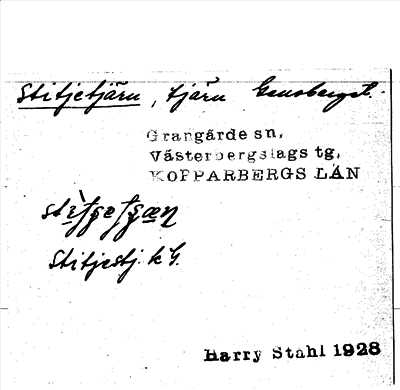 Stitjetjärn, tjärn Grusbergst.
Grangärde sn,
Västerbergslags tg,
KOPPARBERGS LÄN
Stitjestj. k G.
Harry Ståhl 1928